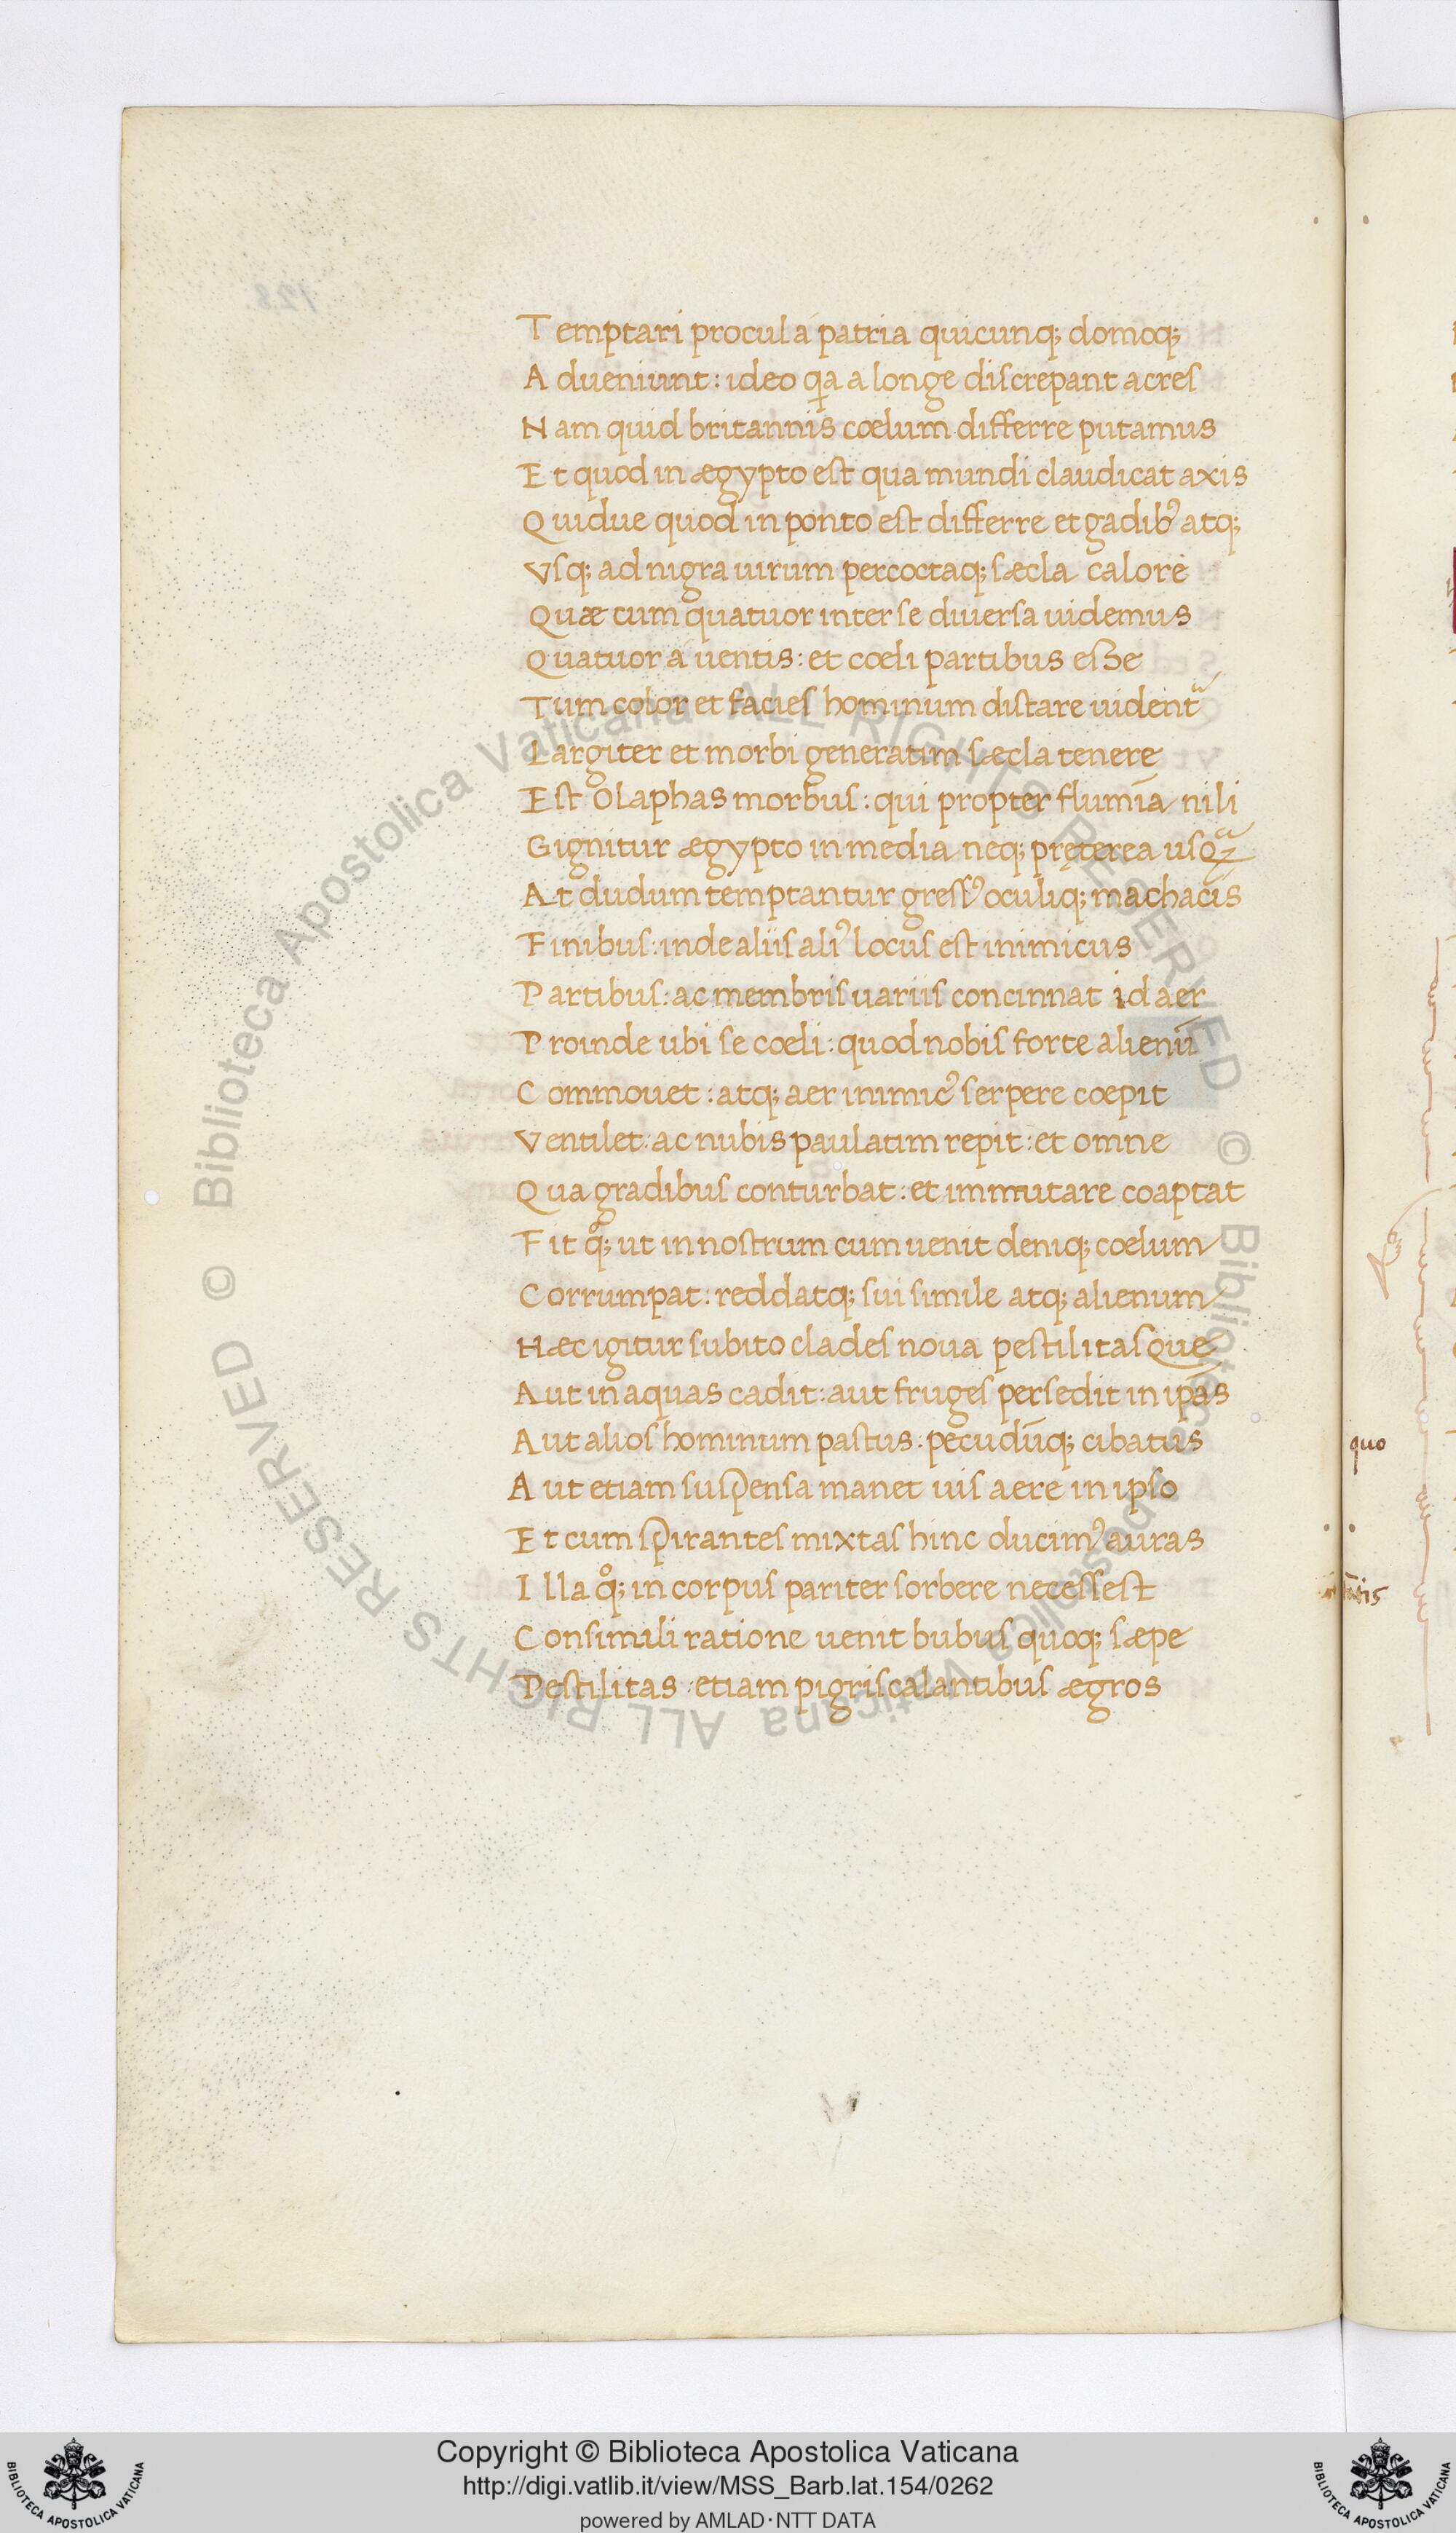 Temptari procul á patria quicunq; domoq;
Adueniunt: ideo qa a longe discrepant acres
Nam quid britannis cœlum differre putamus
Et quod in ægypto est qua mundi claudicat axis
Quidue quod in ponto est differre et gadibꝰ atq;
Vsq; ad nigra uirum percoctaq; sæcla calore
Quæ cum quatuor inter se diuersa uidemus
Quatuor á uentis: et cœli partibus esse
Tum color et facies hominum distare uident᷑
Largiter et morbi generatim sæcla tenere
Est olaphas morbus: qui propter flumīa nili
Gignitur ægypto in media neq; pręterea usqᷓ
At dudum temptantur gressꝰ oculiq; machacis
Finibus: inde aliis aliꝰ locus est inimicus
Partibus: ac membris uariis concinnat id aer
Proinde ubi se cœli: quod nobis forte alienū
Commouet: atq; aer inimicꝰ serpere cœpit
Ventilet: ac nubis paulatim repit: et omne
Qua gradibus conturbat: et immutare coaptat
Fit q̊; ut in nostrum cum uenit deniq; cœlum
Corrumpat: reddatq; sui simile atq; alienum
Hæc igitur subito clades noua pestilitasque
Aut in aquas cadit: aut fruges persedit in ipas
Aut alios hominum pastus: pecudūq; cibatus
Aut etiam suspensa manet uis aere in ipso
Et cum spirantes mixtas hinc ducimꝰ auras
Illa q̊; in corpus pariter sorbere necessest
Consimili ratione uenit bubus quoq; sæpe
Pestilitas: etiam pigris calantibus ægros
quo
Copyright © Biblioteca Apostolica Vaticana
http://digi.vatlib.it/view/MSS_Barb.lat.154/0262
powered by AMLAD·NTT DATA
BIBLIOTECA APOSTOLICA VATICANA
BIBLIOTECA APOSTOLICA VATICANA
© Biblioteca Apostolica Vaticana ALL RIGHTS RESERVED © Biblioteca Apostolica Vaticana ALL RIGHTS RESERVED